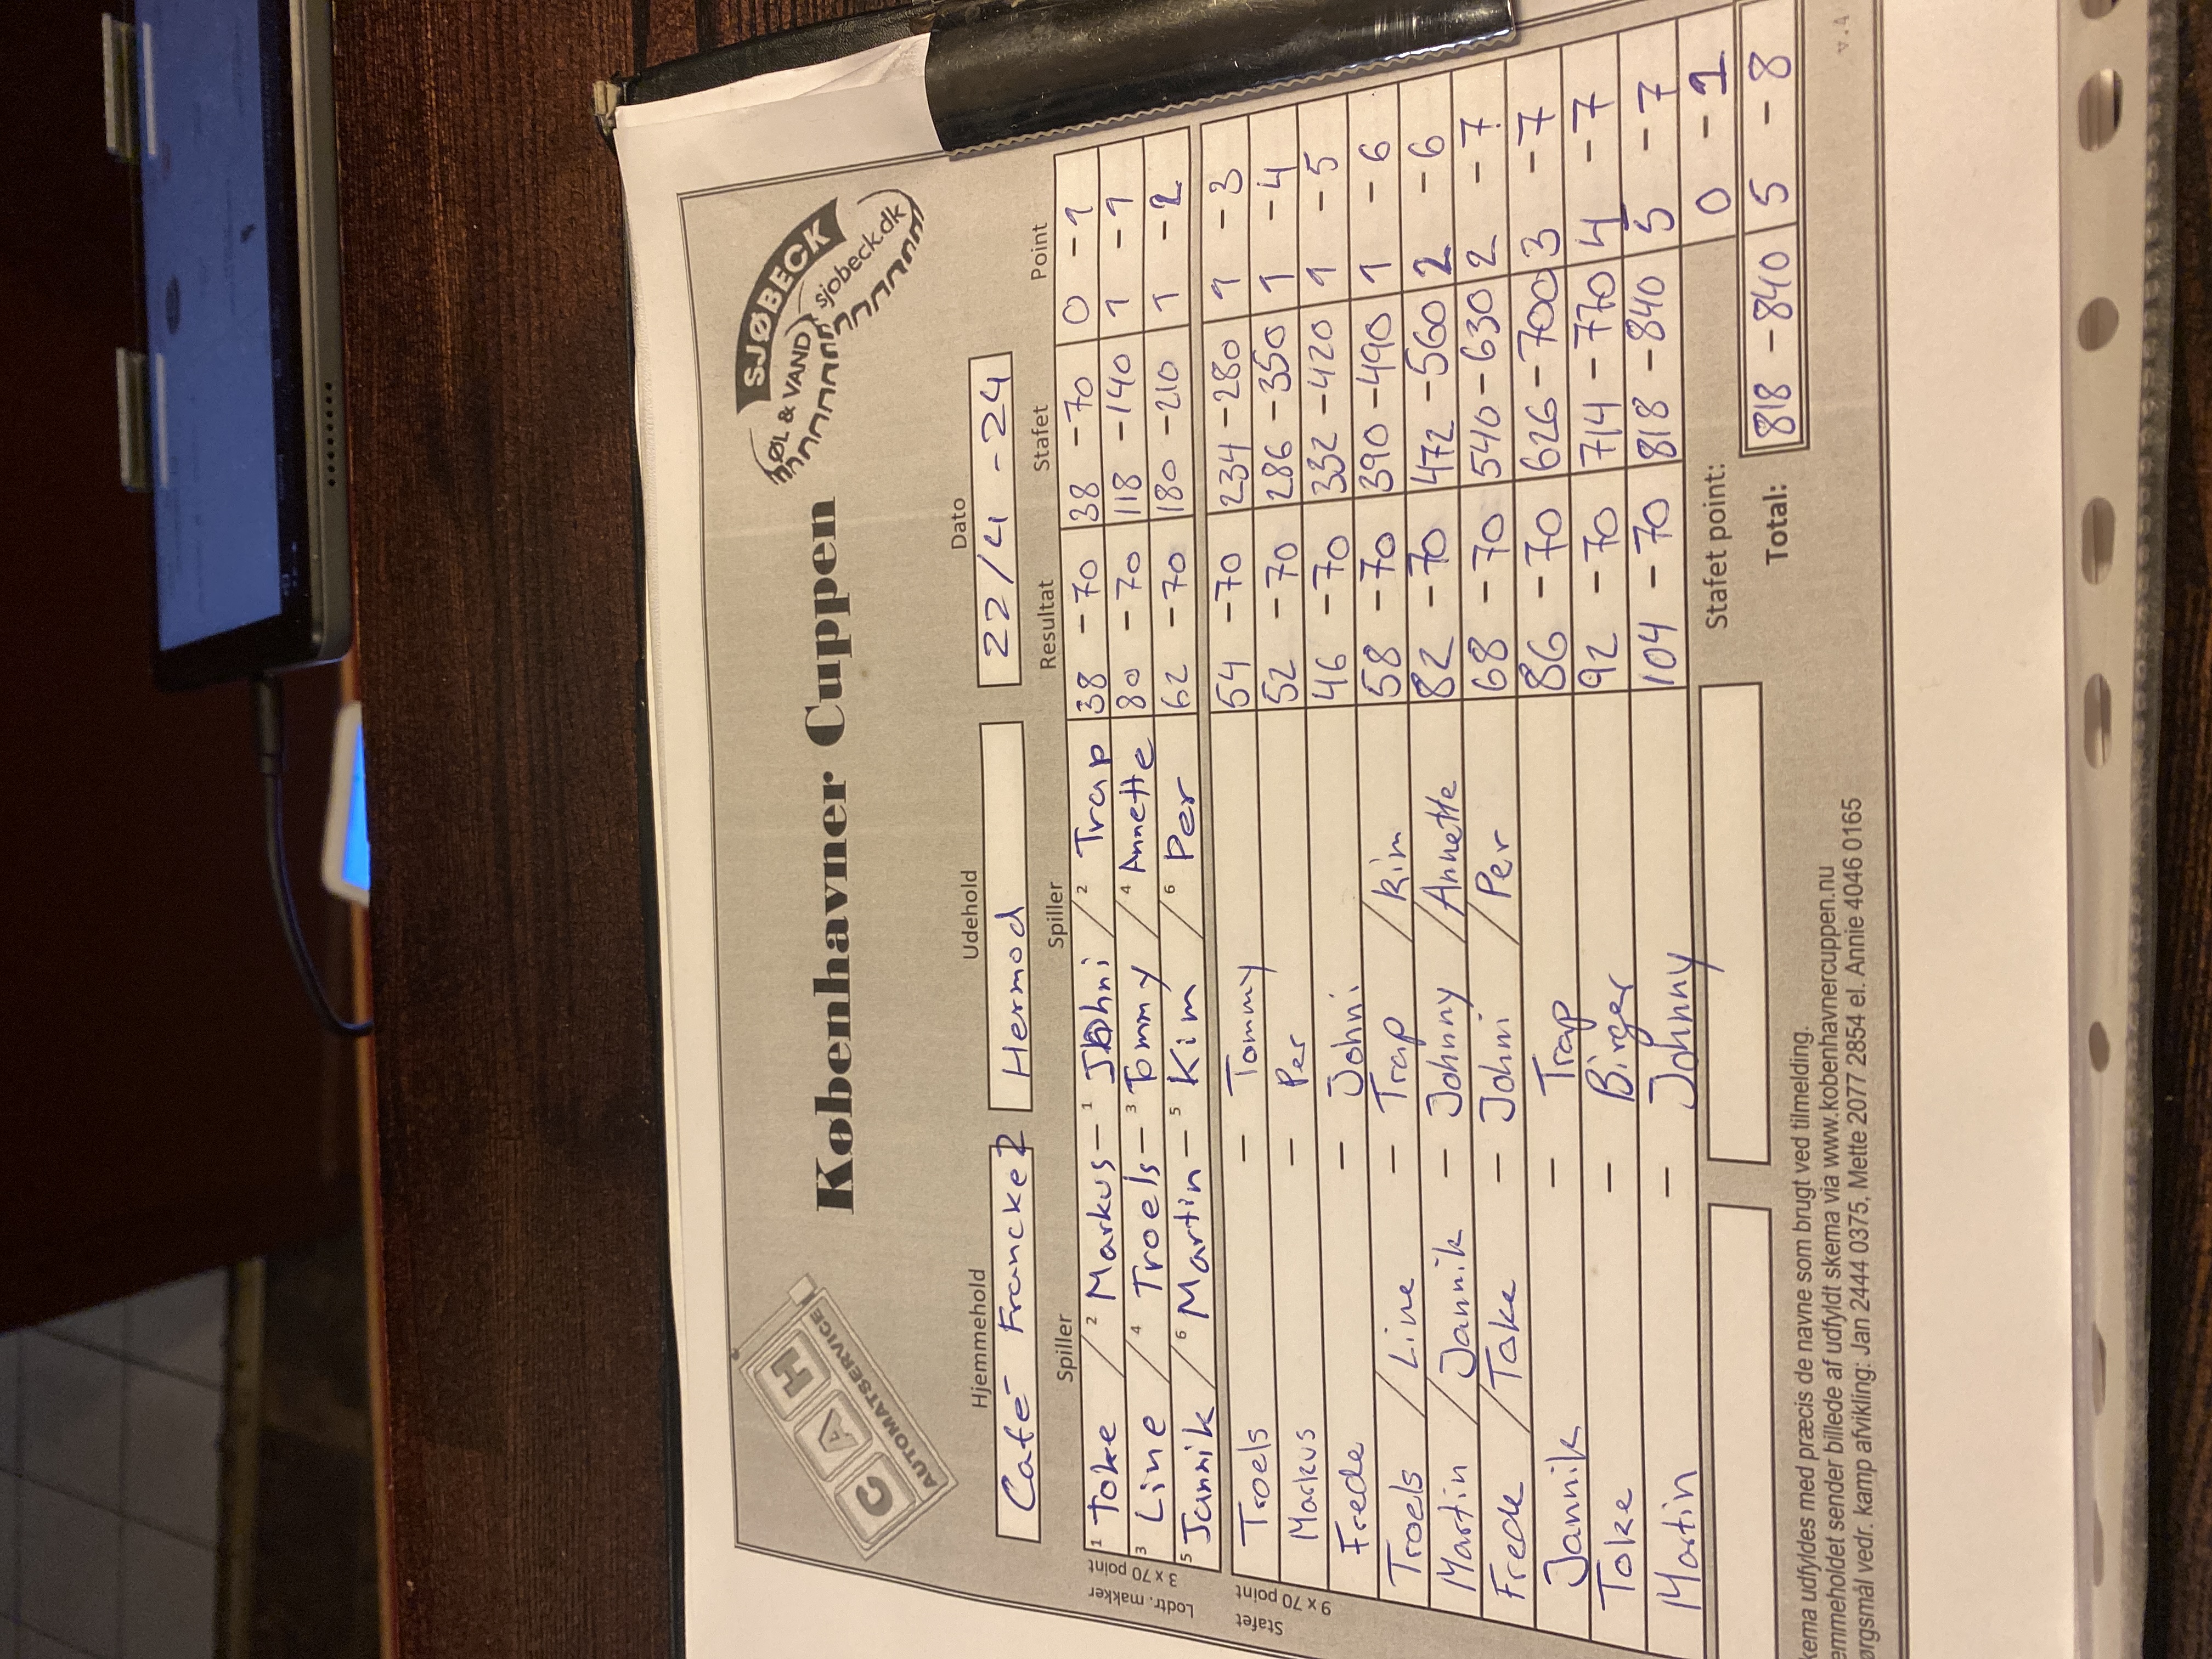 CAH
AUTOMATSERVICE
Københavner Cuppen
SJØBECK
ØL & VAND
sjobeck.dk
Hjemmehold Udehold Dato
Café Francke 2 Hermod 22/4 - 24
Spiller Spiller Resultat Stafet Point
Lodtr. makker
3 x 70 point
1 Toke / 2 Markus - 1 Johni / 2 Trap 38 - 70 38 - 70 0 - 1
3 Line / 4 Troels - 3 Tommy / 4 Annette 80 - 70 118 - 140 1 - 1
5 Jannik / 6 Martin - 5 Kim / 6 Per 62 - 70 180 - 210 1 - 2
Stafet
9 x 70 point
Troels - Tommy 54 - 70 234 - 280 1 - 3
Markus - Per 52 - 70 286 - 350 1 - 4
Frede - Johni 46 - 70 332 - 420 1 - 5
Troels / Line - Trap / Kim 58 - 70 390 - 490 1 - 6
Martin / Jannik - Johnny / Annette 82 - 70 472 - 560 2 - 6
Frede / Toke - Johni / Per 68 - 70 540 - 630 2 - 7
Jannik - Trap 86 - 70 626 - 700 3 - 7
Toke - Birger 92 - 70 714 - 770 4 - 7
Martin - Johnny 104 - 70 818 - 840 5 - 7
Stafet point: 0 - 1
Total: 818 - 840 5 - 8
kema udfyldes med præcis de navne som brugt ved tilmelding.
emmeholdet sender billede af udfyldt skema via www.kobenhavnercuppen.nu
ørgsmål vedr. kamp afvikling: Jan 2444 0375, Mette 2077 2854 el. Annie 4046 0165
v.4